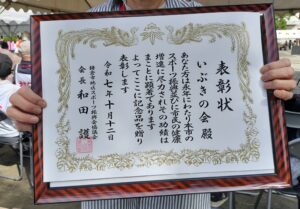 表彰状
いぶきの会殿
あなた方は永年にわたり本市の
スポーツ振興並びに市民の健康
増進に尽力されその功績は
まことに顕著であります
よってここに記念品を贈り
表彰します
令和七年十月十二日
会長 和田 護